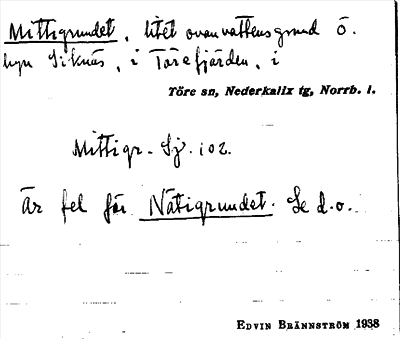 Mittigrundet, litet ovanvattensgrund ö.
byn Siknäs, i Törefjärden, i
Töre sn, Nederkalix tg, Norrb. l.
Mittigr. Sj. 102.
Är fel för Nätigrundet. Se d.o.
EDVIN BRÄNNSTRÖM 1938